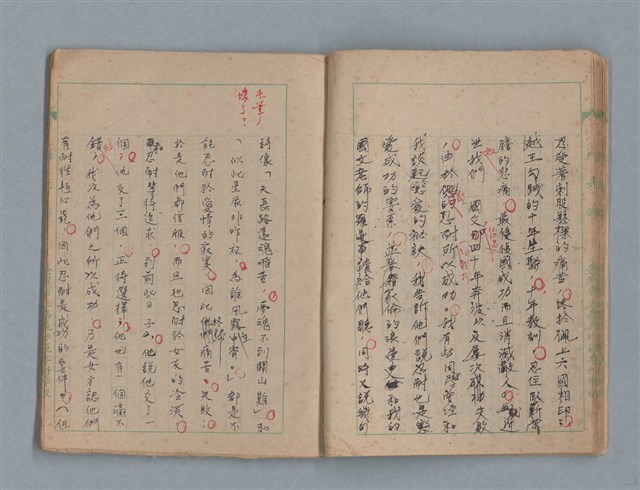 忍受着刺股懸樑的痛苦，終於佩上六國相印；
越王勾踐的十年生聚，十年教訓，忍住臥薪嘗
膽的悲痛，最後復國成功而且消滅敵人。
世我們國父四十年奔波以及屢次職功失敗
，由於他的忍耐所以成功。我有些同學曾經和
我談起戀愛的祕訣，我告訴他們說忍耐也是戀
愛成功的要素，並舉羅敦倫的浪漫史和我的
國文老師的羅曼講給他們聽，同時又說幾句
詩像「天長路遠魂飛苦，夢魂不到關山難」和
「似此星辰非昨夜，為誰風露中宵。」都是不
能忍耐於愛情的寂寞，因此他們痛苦。失敗；
於是他們都信服，而且把忍耐於女友的冷淡
忍耐等待追求，到前些日子，他說他交了一
個，他交了三個，正待選擇，他也有一個滿不
錯，我次為他們之所以成功，乃是女方認他們
有耐性恒心罷，因此忍耐是成功的要件。但
毛筆
壞了？